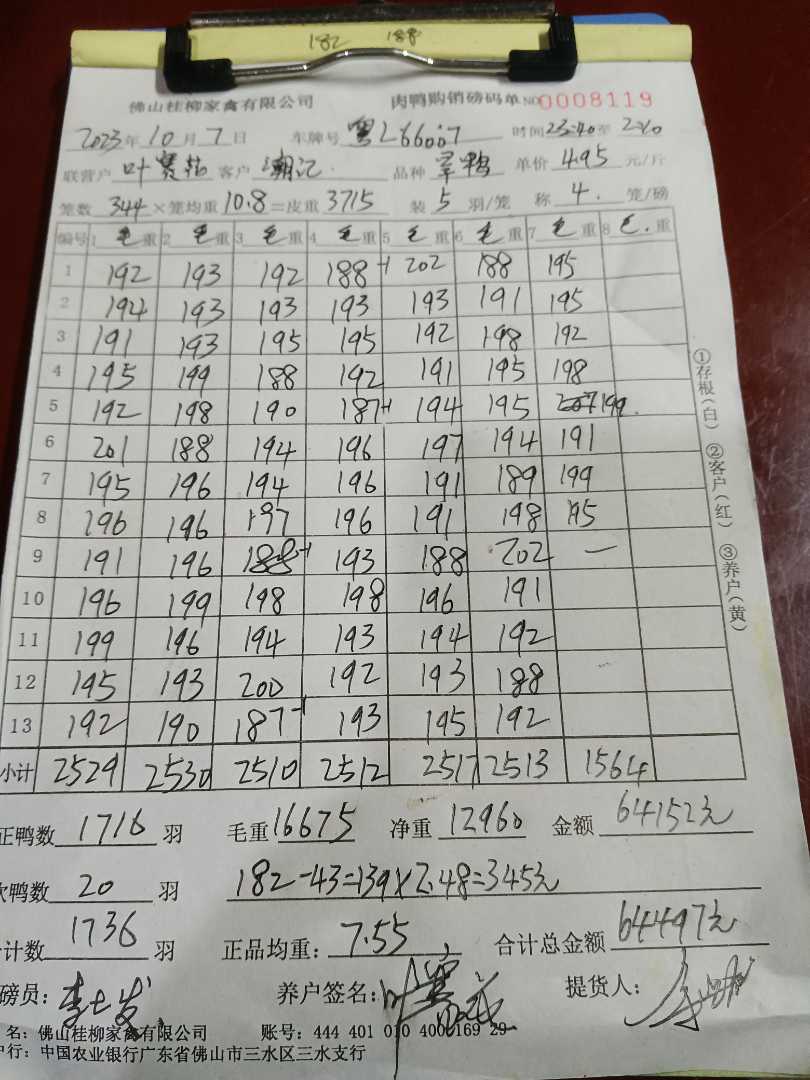 182 188
佛山桂柳家禽有限公司 肉鸭购销磅码单 NO 0008119
2023年10月7日 车牌号 粤L66007 时间23:40至2:10
联营户 叶赛花 客户 潮记 品种 单价 4.95 元/斤
笼数 344 ×笼均重 10.8 =皮重 3715 装 5 羽/笼 称 4. 笼/磅
编号 1 毛重 2 毛重 3 毛重 4 毛重 5 毛重 6 毛重 7 毛重 8 毛.重
1 192 193 192 188-1 202 188 195
2 194 193 193 193 193 191 195
3 191 193 195 195 192 198 192
4 195 199 188 192 191 195 198
5 192 198 190 187-1 194 195 199.
6 201 188 194 196 197 194 191
7 195 196 194 196 191 189 199
8 196 196 197 196 191 198 195
9 191 196 188-1 193 188 202 —
10 196 199 198 198 196 191
11 199 196 194 193 194 192
12 195 193 200 192 193 188
13 192 190 187-1 193 195 192
小计 2529 2530 2510 2512 2517 2513 1564
①存根(白) ②客户(红) ③养户(黄)
正鸭数 1716 羽 毛重 16675 净重 12960 金额 64152元
次鸭数 20 羽 182-43=139×2.48=345元
计数 1736 羽 正品均重: 7.55 合计总金额 64497元
磅员: 养户签名: 提货人:
名: 佛山桂柳家禽有限公司 账号: 444 401 010 4000169 29
户行: 中国农业银行广东省佛山市三水区三水支行